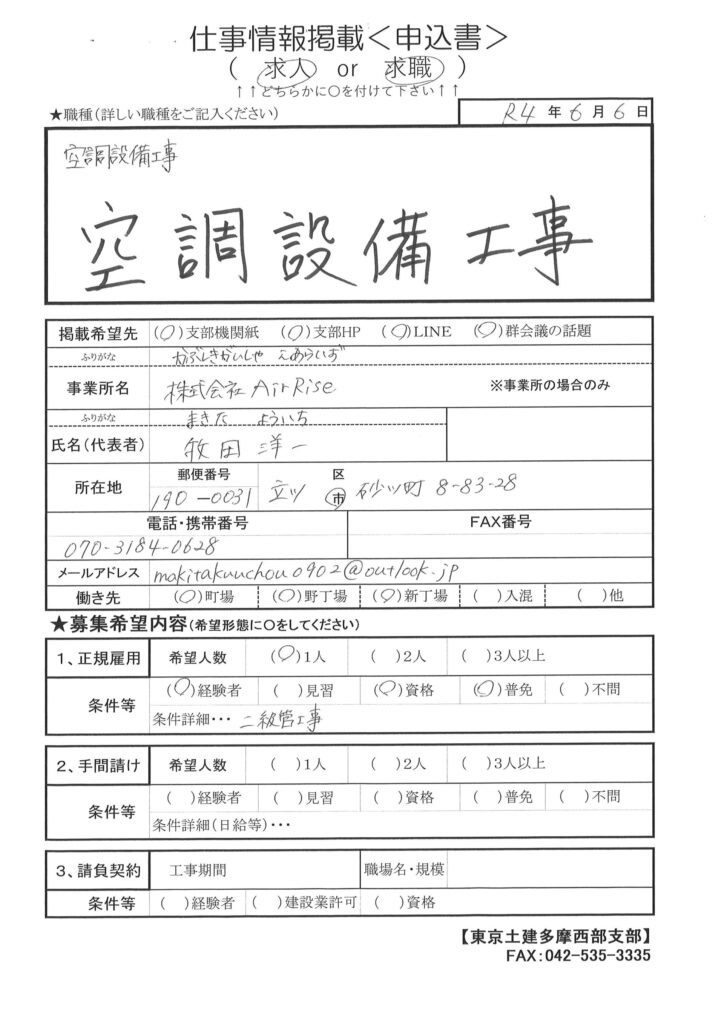 仕事情報掲載＜申込書＞
（ 求人 or 求職 ）
↑↑どちらかに○を付けて下さい↑↑
★職種（詳しい職種をご記入ください）
R4 年 6 月 6 日
空調設備工事
空調設備工事
掲載希望先 （○）支部機関紙 （○）支部HP （○）LINE （○）群会議の話題
ふりがな かぶしきがいしゃ えあらいず
事業所名 株式会社 AirRise ※事業所の場合のみ
ふりがな まきた よういち
氏名（代表者） 牧田 洋一
所在地 郵便番号 区
190-0031 立川 市 砂川町 8-83-28
電話・携帯番号 FAX番号
070-3184-0628
メールアドレス makitakuuchou0902@outlook.jp
働き先 （○）町場 （○）野丁場 （○）新丁場 （ ）入混 （ ）他
★募集希望内容（希望形態に○をしてください）
1、正規雇用 希望人数 （○）1人 （ ）2人 （ ）3人以上
条件等 （○）経験者 （ ）見習 （○）資格 （○）普免 （ ）不問
条件詳細・・・ 二級管工事
2、手間請け 希望人数 （ ）1人 （ ）2人 （ ）3人以上
条件等 （ ）経験者 （ ）見習 （ ）資格 （ ）普免 （ ）不問
条件詳細（日給等）・・・
3、請負契約 工事期間 職場名・規模
条件等 （ ）経験者 （ ）建設業許可 （ ）資格
【東京土建多摩西部支部】
FAX：042-535-3335